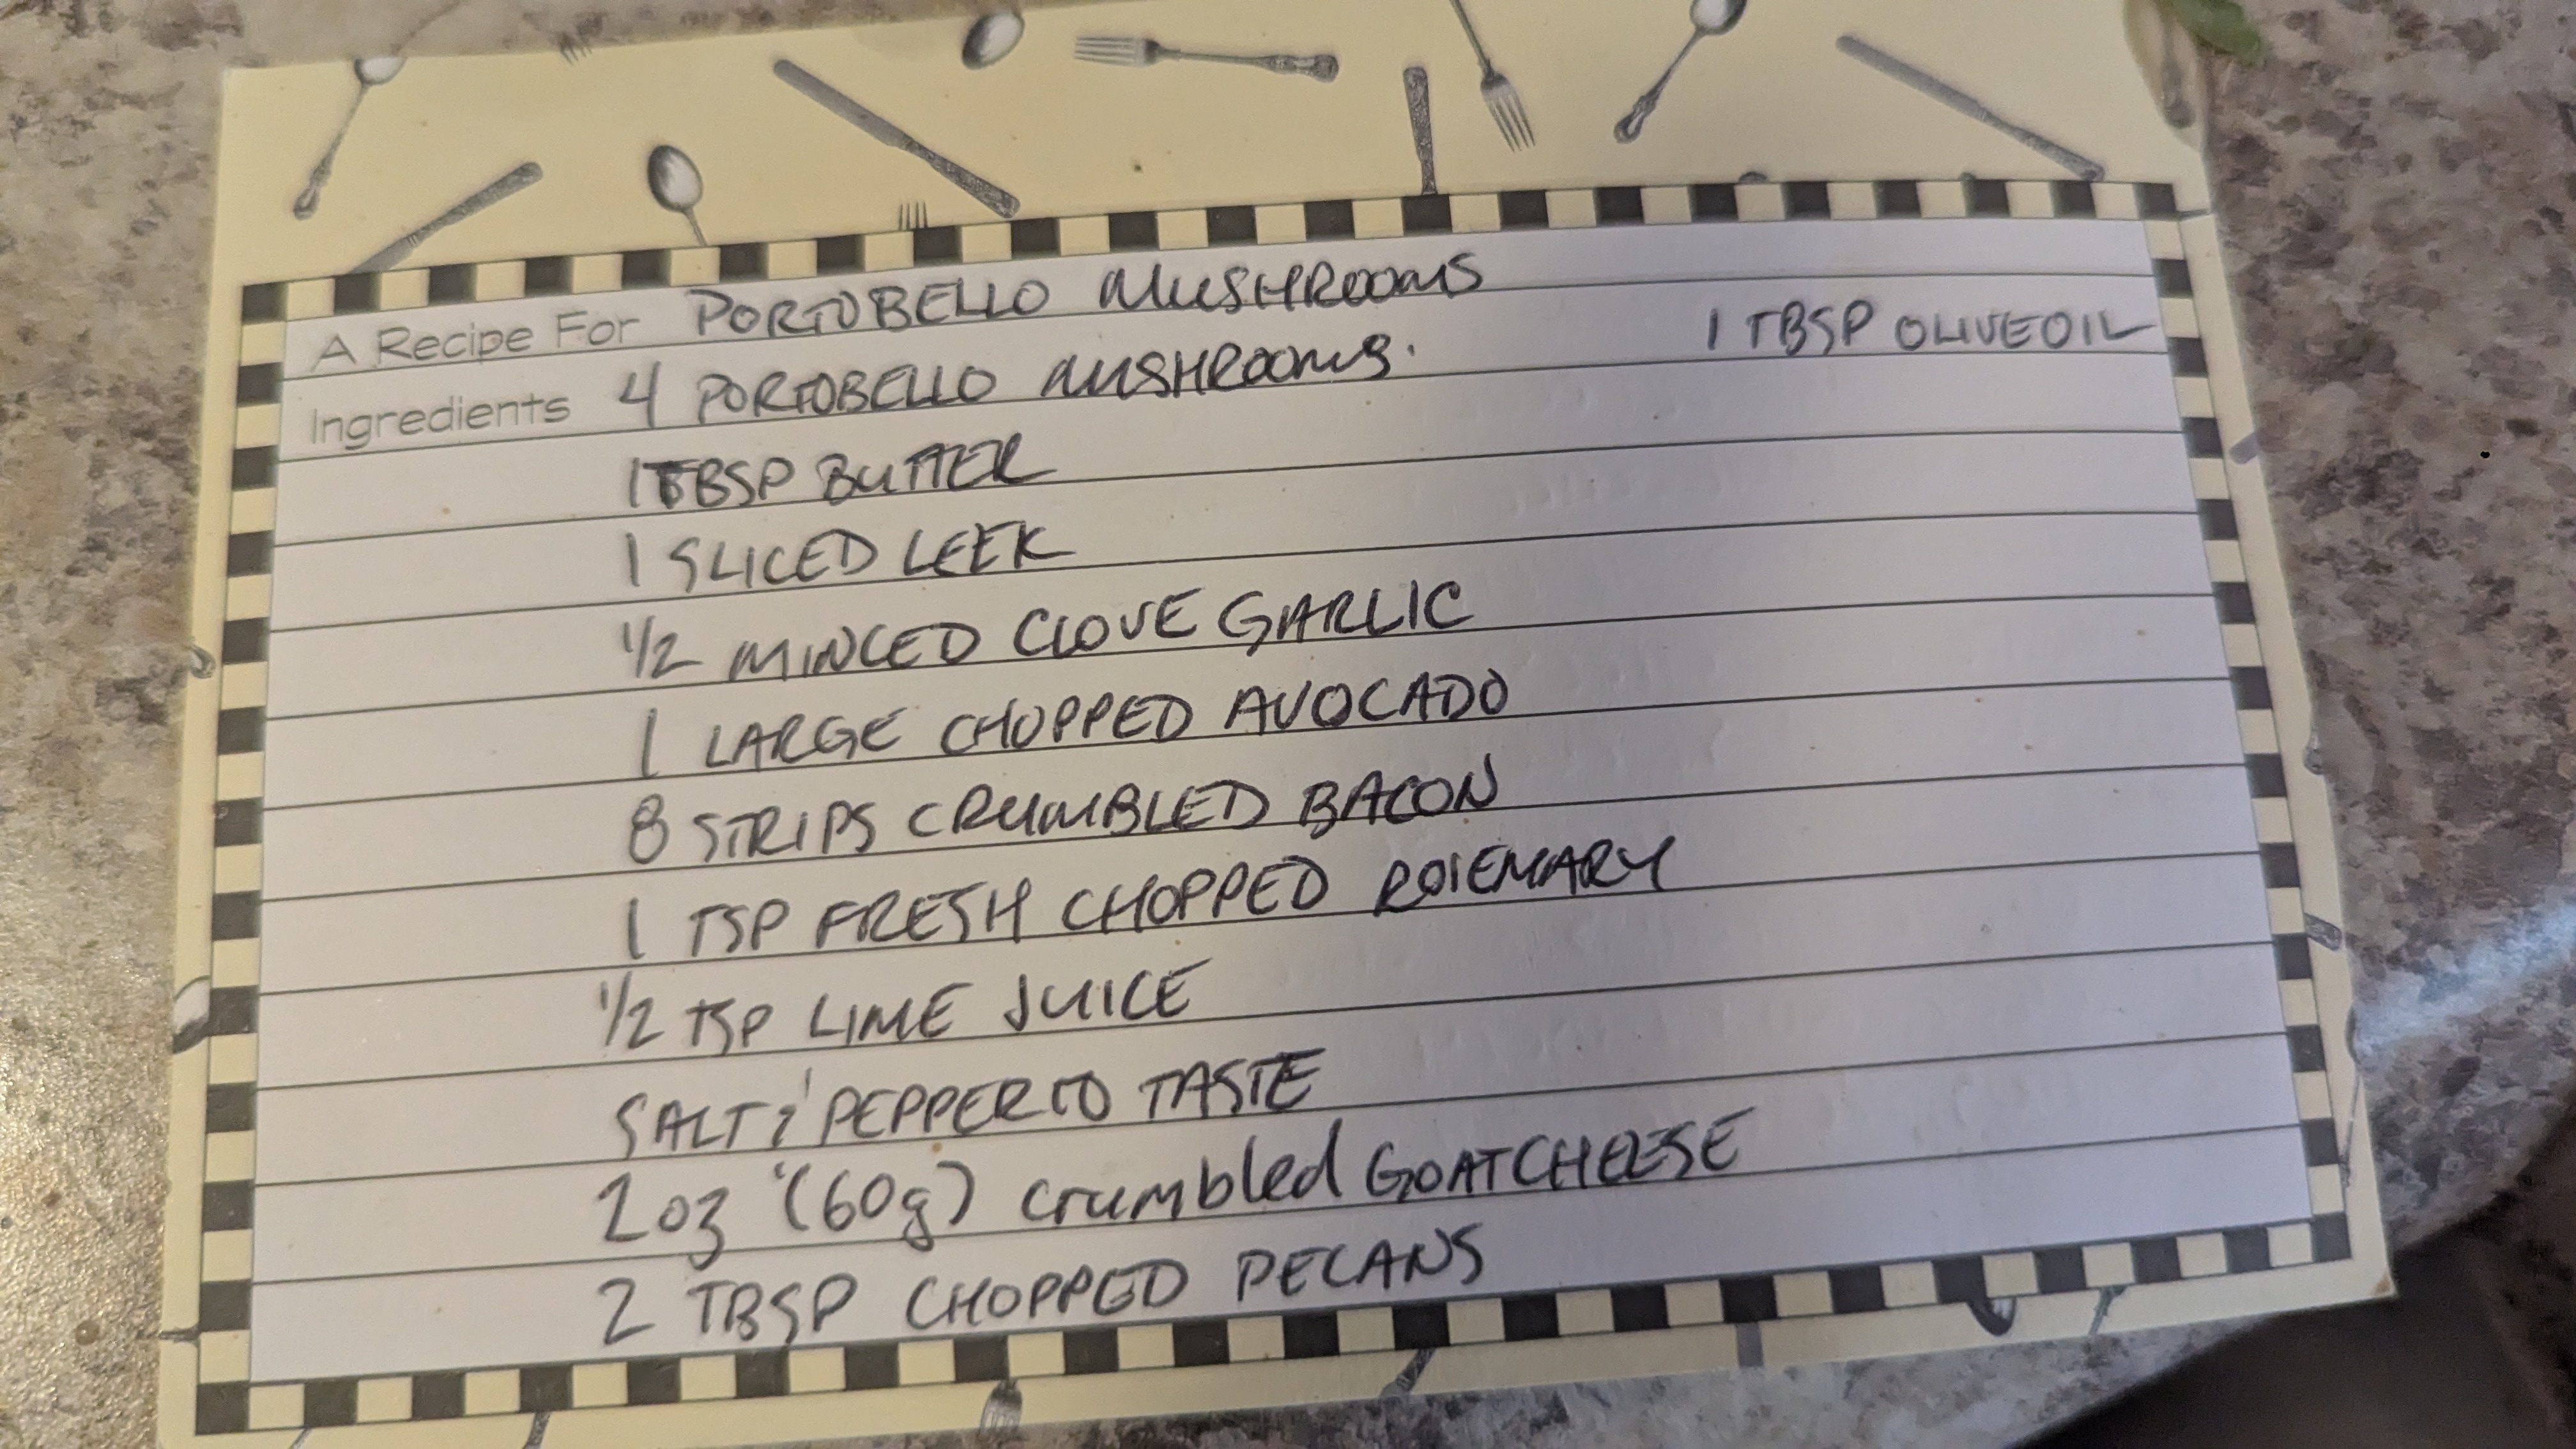 A Recipe For PORTOBELLO MUSHROOMS
Ingredients 4 PORTOBELLO MUSHROOMS. 1 TBSP OLIVE OIL
1 TBSP BUTTER
1 SLICED LEEK
1/2 MINCED CLOVE GARLIC
1 LARGE CHOPPED AVOCADO
8 STRIPS CRUMBLED BACON
1 TSP FRESH CHOPPED ROSEMARY
1/2 TSP LIME JUICE
SALT & PEPPER TO TASTE
2oz (60g) crumbled GOAT CHEESE
2 TBSP CHOPPED PECANS